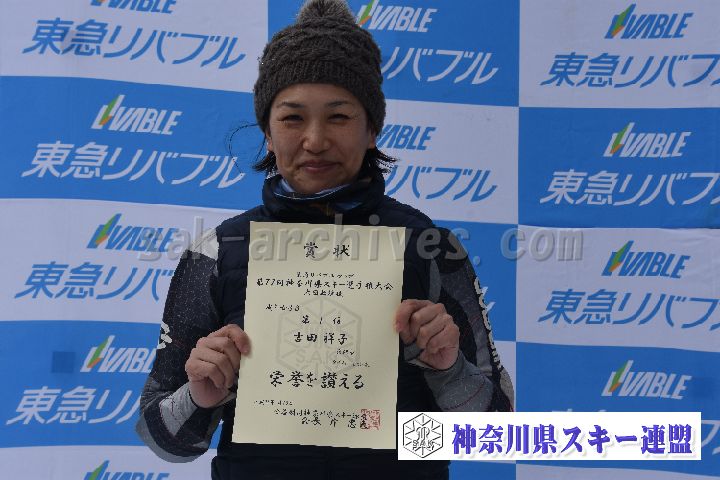 VABLE
東急リバブル
VABLE
東急リバブル
VABLE
東急リバブル
VABLE
東急リバブル
VABLE
東急リバブル
VABLE
東急リバブル
VABLE
東急リバブル
VABLE
東急リバブル
VABLE
東急リバブル
VABLE
東急リバブル
sak-archives.com
賞状
東急リバブルカップ
第77回神奈川県スキー選手権大会
大回転競技
第1位
吉田 祥子
栄誉を讃える
公益財団神奈川県スキー連盟
会長 片 忠
神奈川県スキー連盟